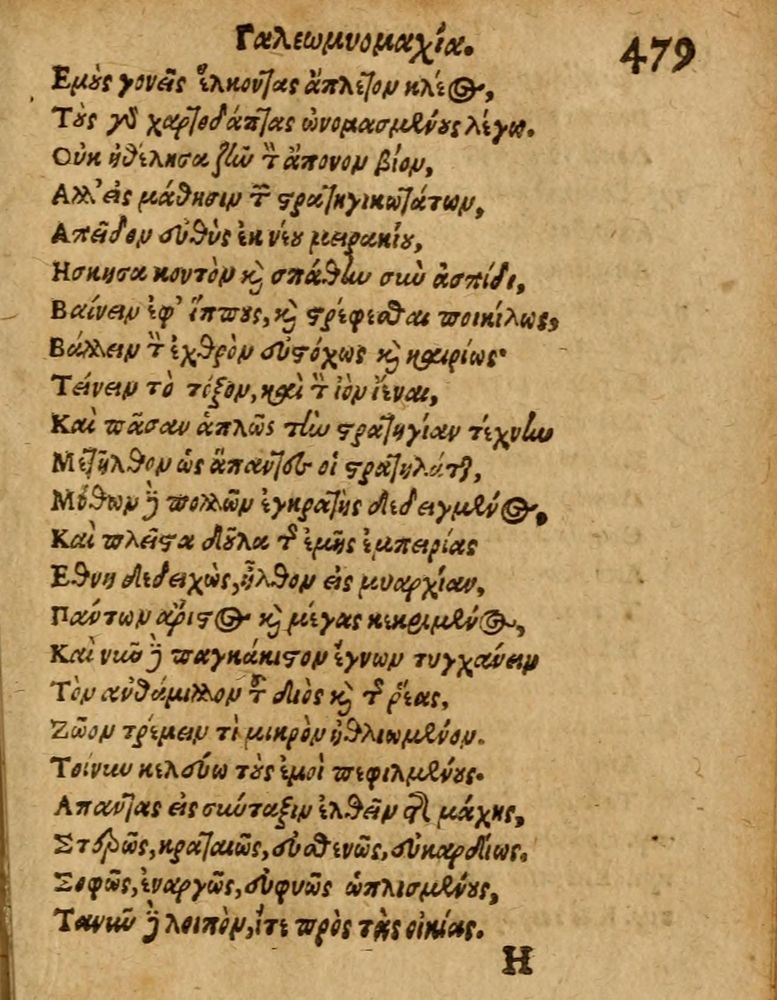 Γαλεωμυομαχία.
479
Εμοὺς γονεῖς ἕλκοντας ἄπλετον κλέος,
Τοὺς γὸ χαρτοδάπτας ὠνομασμένους λέγω.
Οὐκ ἠθέλησα ζῆν τὸν ἄπονον βίον,
Αλλ' εἰς μάθησιν τῶν στρατηγικωτάτων,
Απεῖδον εὐθὺς ἐκ νέου μειρακίου,
Ησκησα κοντὸν καὶ σπάθην σὺν ἀσπίδι,
Βαίνειν ἐφ' ἵππους, καὶ στρέφεσθαι ποικίλως,
Βάλλειν τὸν ἐχθρὸν εὐστόχως καὶ καιρίως·
Τείνειν τὸ τόξον, καὶ τὸν ἰὸν ἵεναι,
Καὶ πᾶσαν ἁπλῶς τὴν στρατηγίαν τέχνην
Μετῆλθον ὡς ἅπαντες οἱ στρατηλάται,
Μόθων δὲ πολλῶν ἐγκρατὴς δεδειγμένος,
Καὶ πλεῖστα δοῦλα τῆς ἐμῆς ἐμπειρίας
Εθνη δεδειχὼς, ἦλθον εἰς μυαρχίαν,
Πάντων ἄριστος καὶ μέγας κεκριμένος,
Καὶ νῦν δὲ παγκάκιστον ἔγνων τυγχάνειν
Τὸν ἀνθάμιλλον τοῦ διὸς καὶ τῆς ῥέας,
Ζῶον τρέμειν τὶ μικρὸν ἠθλιωμένον.
Τοίνυν κελεύω τοὺς ἐμοὶ πεφιλμένους.
Απαντας εἰς σύνταξιν ἐλθεῖν τῆς μάχης,
Στερρῶς, κραταιῶς, εὐσθενῶς, εὐκαρδίως.
Σοφῶς, ἐναργῶς, εὐφυῶς ὡπλισμένους,
Τανῦν δὲ λοιπὸν, ἴτε πρὸς τὰς οἰκίας.
Η